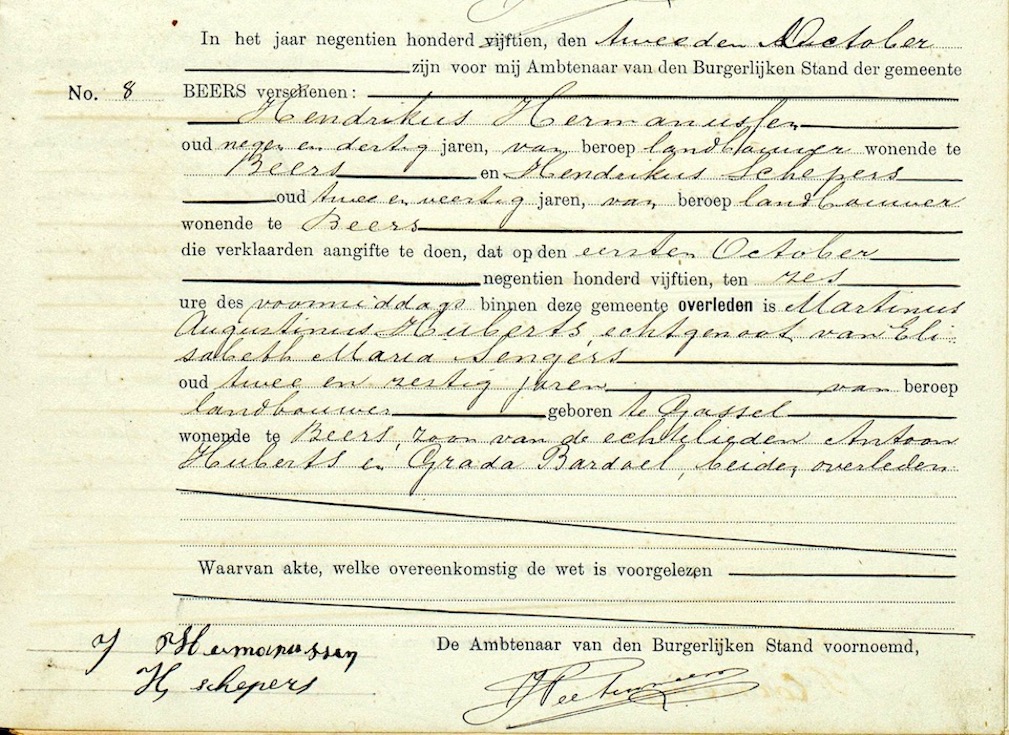 In het jaar negentien honderd vijftien, den tweeden October
zijn voor mij Ambtenaar van den Burgerlijken Stand der gemeente
No. 8 BEERS verschenen:
Hendrikus Hermanussen
oud negen en dertig jaren, van beroep landbouwer wonende te
Beers en Hendrikus Schepers
oud twee en veertig jaren, van beroep landbouwer
wonende te Beers
die verklaarden aangifte te doen, dat op den eersten October
negentien honderd vijftien, ten zes
ure des voormiddags binnen deze gemeente overleden is Martinus
Augustinus Huberts, echtgenoot van Eli
sabeth Maria Sengers
oud twee en zestig jaren van beroep
landbouwer geboren te Gassel
wonende te Beers, zoon van de echtelieden Antoon
Huberts en Grada Bardoel, beiden overleden
Waarvan akte, welke overeenkomstig de wet is voorgelezen
De Ambtenaar van den Burgerlijken Stand voornoemd,
Hermanussen
H, schepers